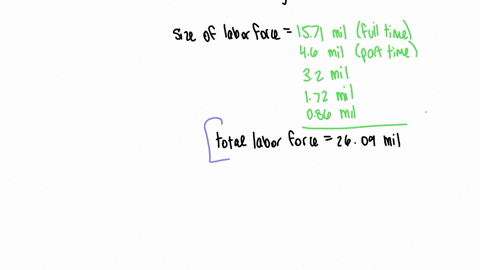 size of labor force = 15.71 mil (full time)
4.6 mil (part time)
3.2 mil
1.72 mil
0.86 mil
total labor force = 26.09 mil